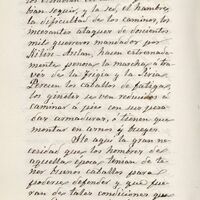 bian seguir, y la sed, el hambre,
la dificultad de los caminos, los
incesantes ataques de doscientos
mil guerreros mandados por
hacen extremada-
mente penosa la marcha a tra-
vés de la Frigia y la Siria.
Perecen los caballos de fatiga,
los ginetes se ven reducidos á
caminar á pié con sus pesa-
das armaduras, ó tienen que
montar en asnos y bueyes.
la gran ne-
cesidad que los hombres de
aquella época tenian de te-
ner buenos caballos para
poderse defender y que fue-
ran de tales condiciones que